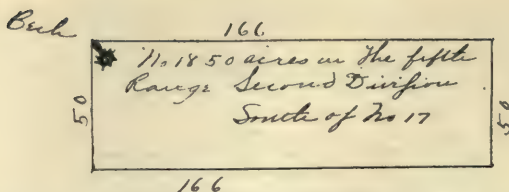 Bech
166
No 18 50 acres in The fifth
Range Second Division
South of No 17
50
50
166